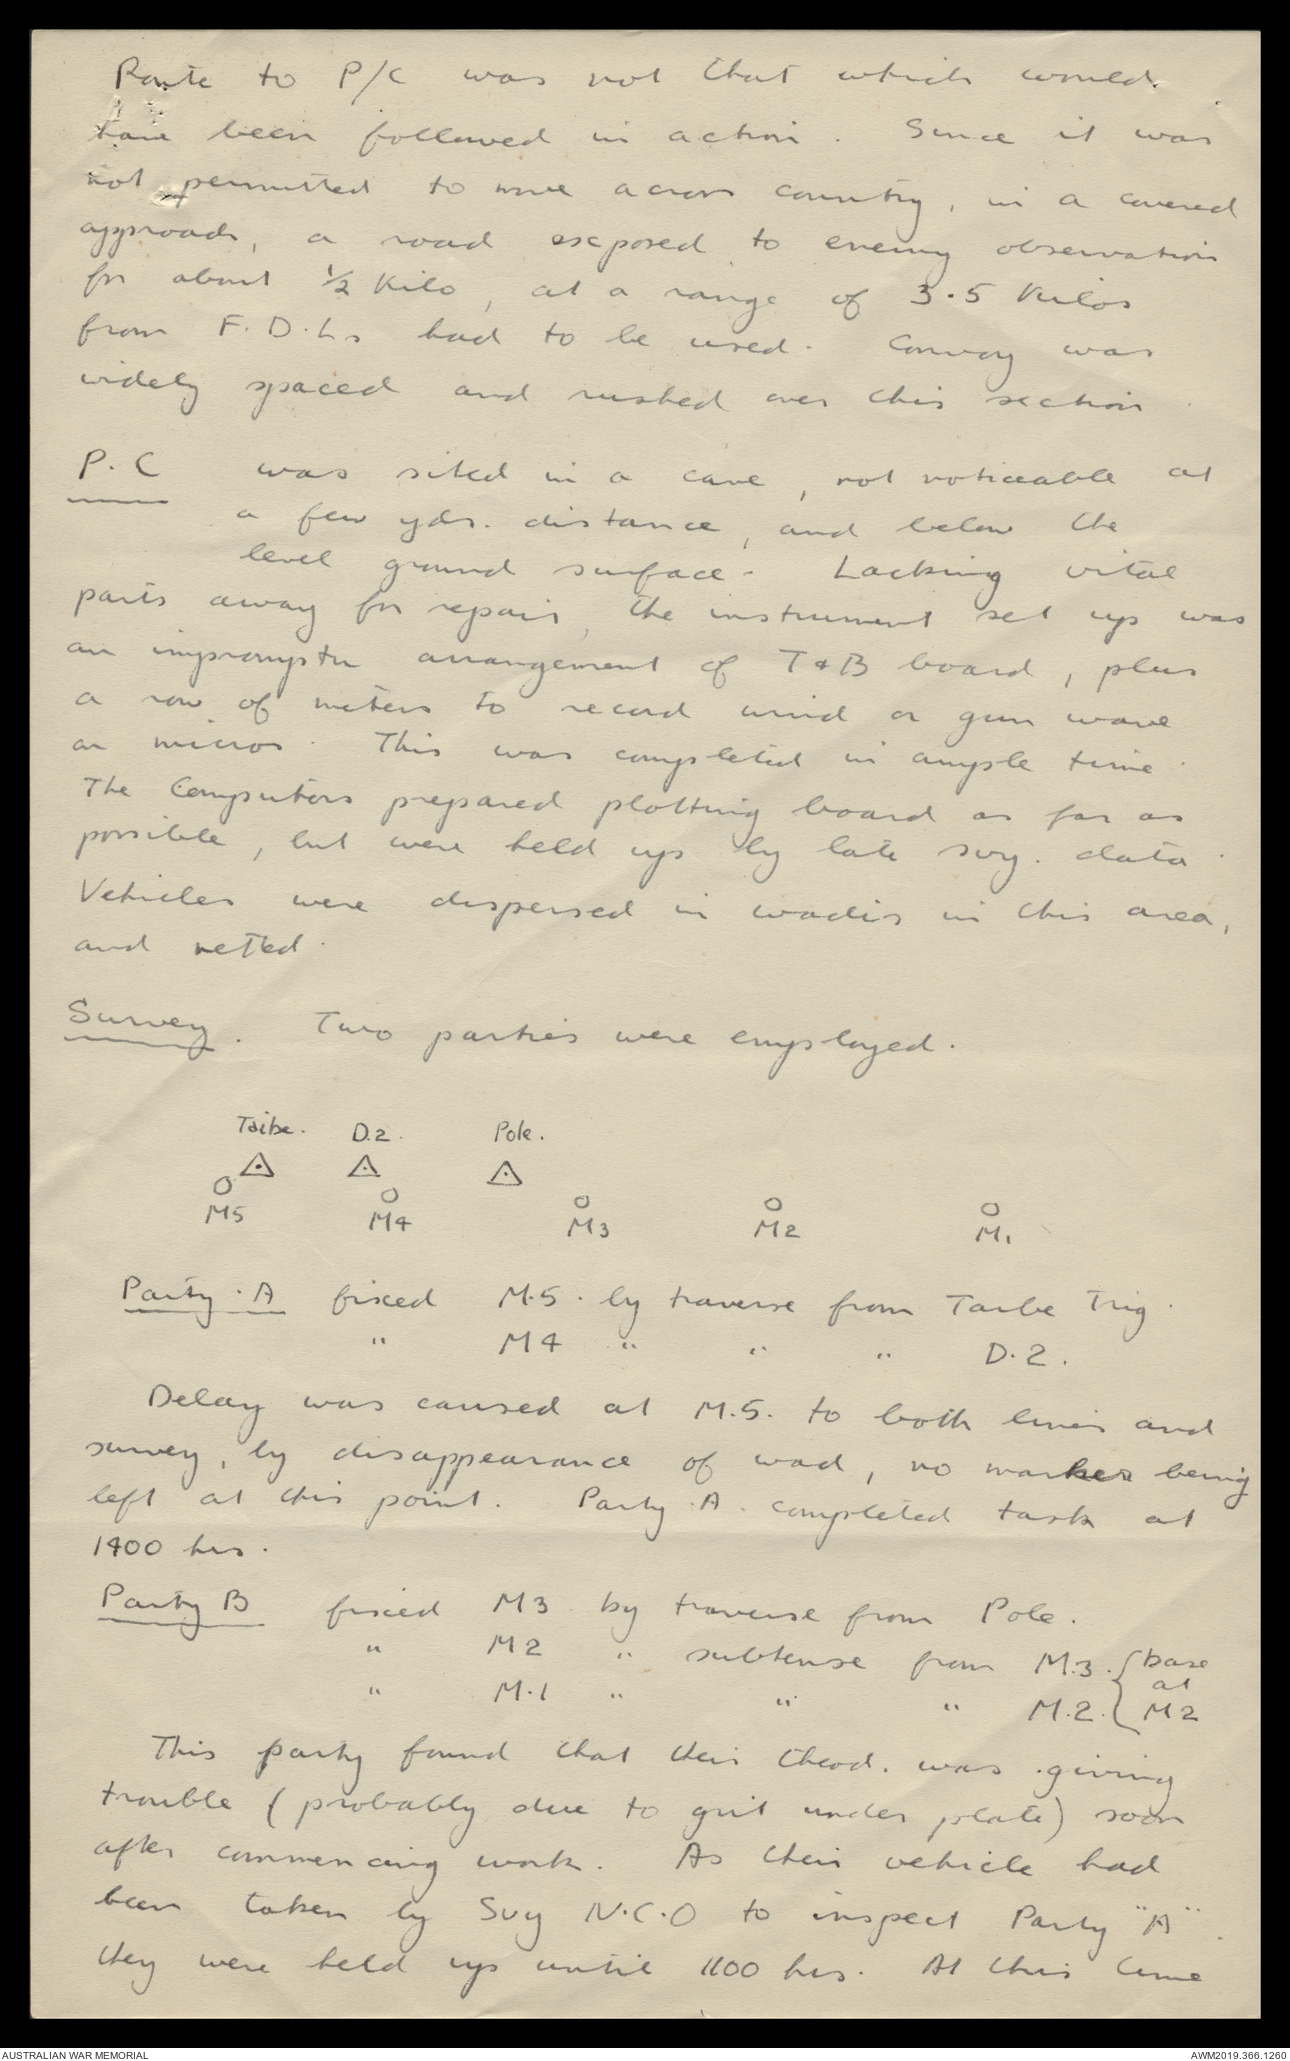 Route to P/C was not that which would
have been followed in action. Since it was
not permitted to move across country, in a covered
approach, a road exposed to enemy observation
for about ½ Kilo, at a range of 3.5 Kilos
from F.D.Ls had to be used. Convoy was
widely spaced and rushed over this section.
P.C was sited in a cave, not noticeable at
a few yds. distance, and below the
level ground surface. Lacking vital
parts away for repair, the instrument set up was
an impromptu arrangement of T & B board, plus
a row of meters to record wind or gun wave
on micros. This was completed in ample time.
The Computors prepared plotting board as far as
possible, but were held up by late svy. data.
Vehicles were dispersed in wadis in this area,
and netted.
Survey. Two parties were employed.
Taibe. D.2. Pole.
M5 M4 M3 M2 M1
Party.A fixed M.5. by traverse from Taibe Trig.
" M4 " " " D.2.
Delay was caused at M.5. to both lines and
survey, by disappearance of wad, no marker being
left at this point. Party.A. completed task at
1400 hrs.
Party B fixed M3 by traverse from Pole.
" M2 " subtense from M.3. { base
at
" M.1 " " " M.2. { M2
This party found that their theod. was giving
trouble (probably due to grit under plate) soon
after commencing work. As their vehicle had
been taken by Svy N.C.O to inspect Party "A".
they were held up until 1100 hrs. At this time
AUSTRALIAN WAR MEMORIAL AWM2019.366.1260